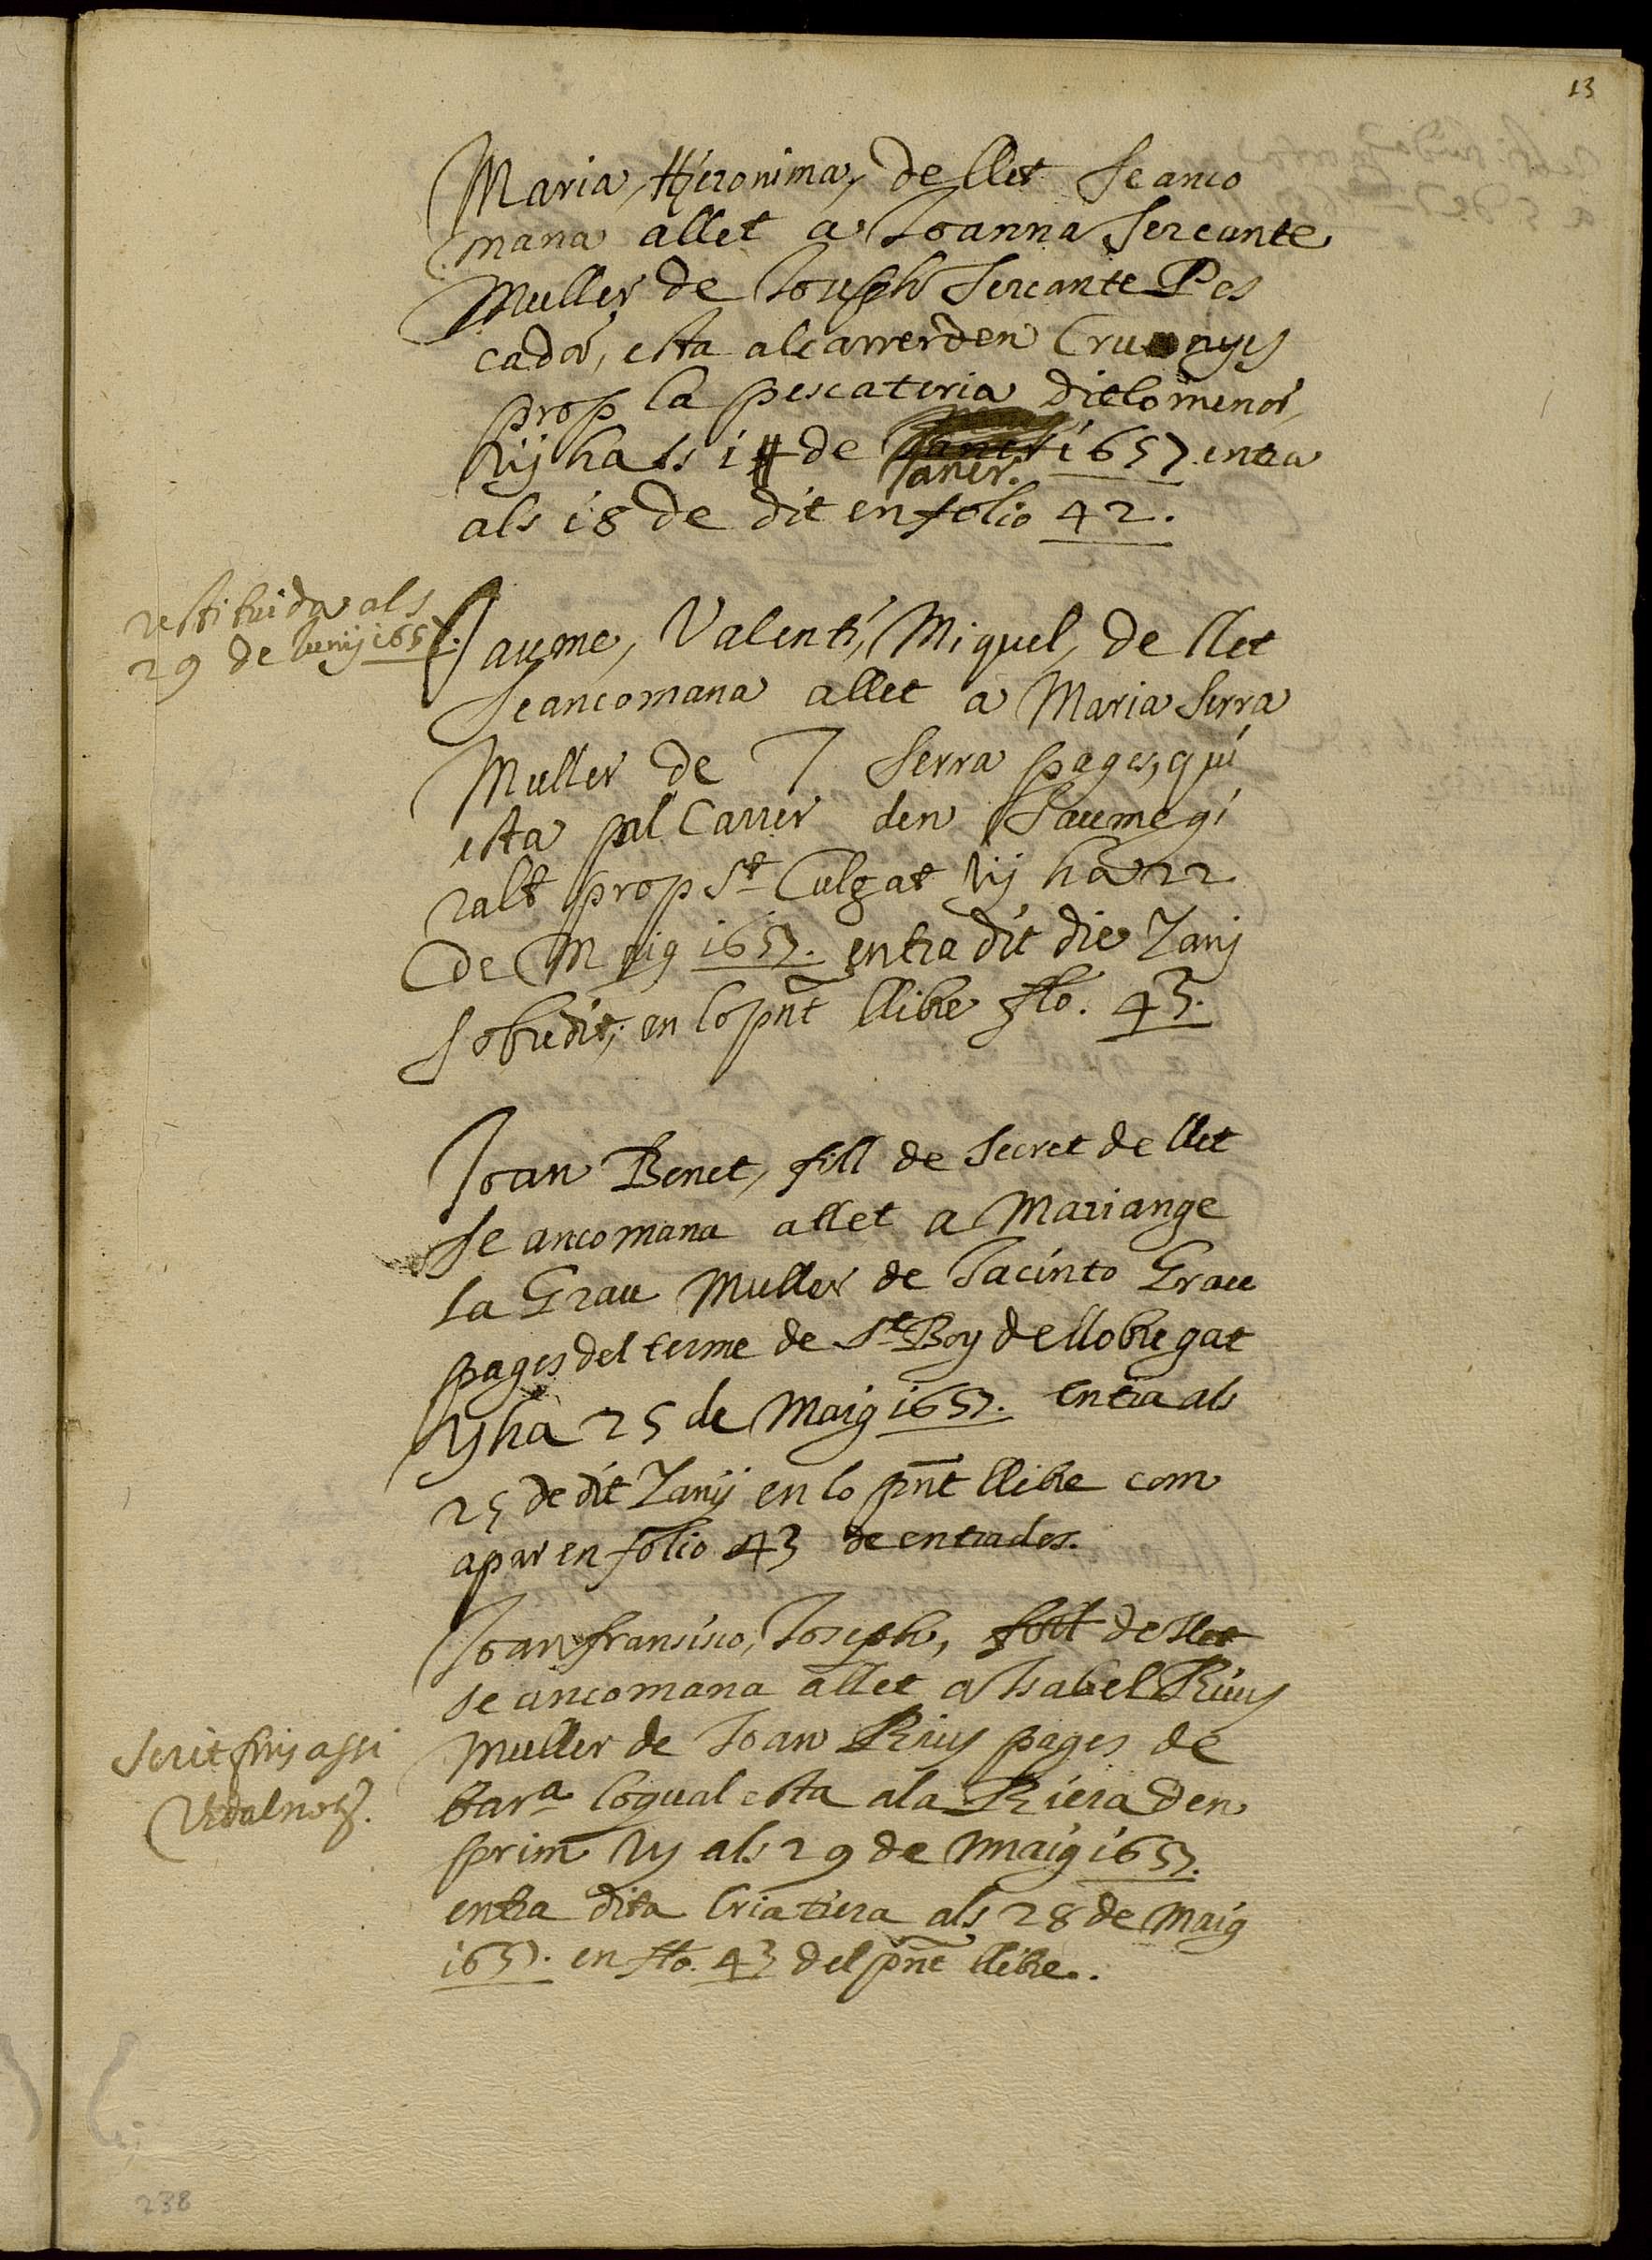 13
Maria, Hieronima, de llet Se anco
mana allet a Joanna Sercante
Muller de Joseph Sercante Pes
cador, esta al carrer den Cru nyes
prop la pescateria dit lo menor,
vuy ha ss 1 de 1657 entra
Janer.
als 18 de dit en folio 42.
restituida als
29 de Juny 1657.
Jayme, Valenti, Miquel, de llet
Se ancomana allet a Maria Serra
Muller de T Serra pages, qui
esta pal Carrer den Jaumegi
ralt prop St Culgat vuy ha 22
de Maig 1657. entra dit die Jany
Sobredit, en lo pnt llibre fto. 43.
Joan Benet, fill de Secret de llet
Se ancomana allet a Mariange
la Grau Muller de Jacinto Grau
pages del terme de St Boy de llobregat
vuy ha 25 de Maig 1657. Entra als
25 de dit Jany en lo pnt llibre com
apar en folio 43 de entrades.
Joan fransisco, Joseph, fill de llet
se ancomana allet a Isabel Rius
Muller de Joan Rius pages de
Bara lo qual esta a la Riera den
prim vuy als 29 de Maig 1657.
entra dita Criatura als 28 de Maig
1657. en fto. 43 del pnt llibre.
Scrit fins assi
Vidal not.
238